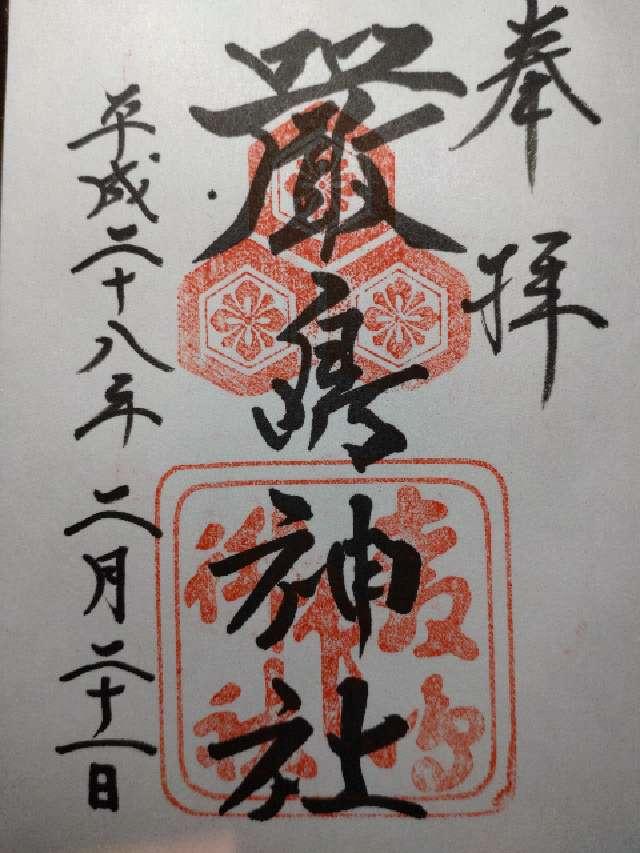 奉拝
嚴島神社
平成二十八年二月二十一日